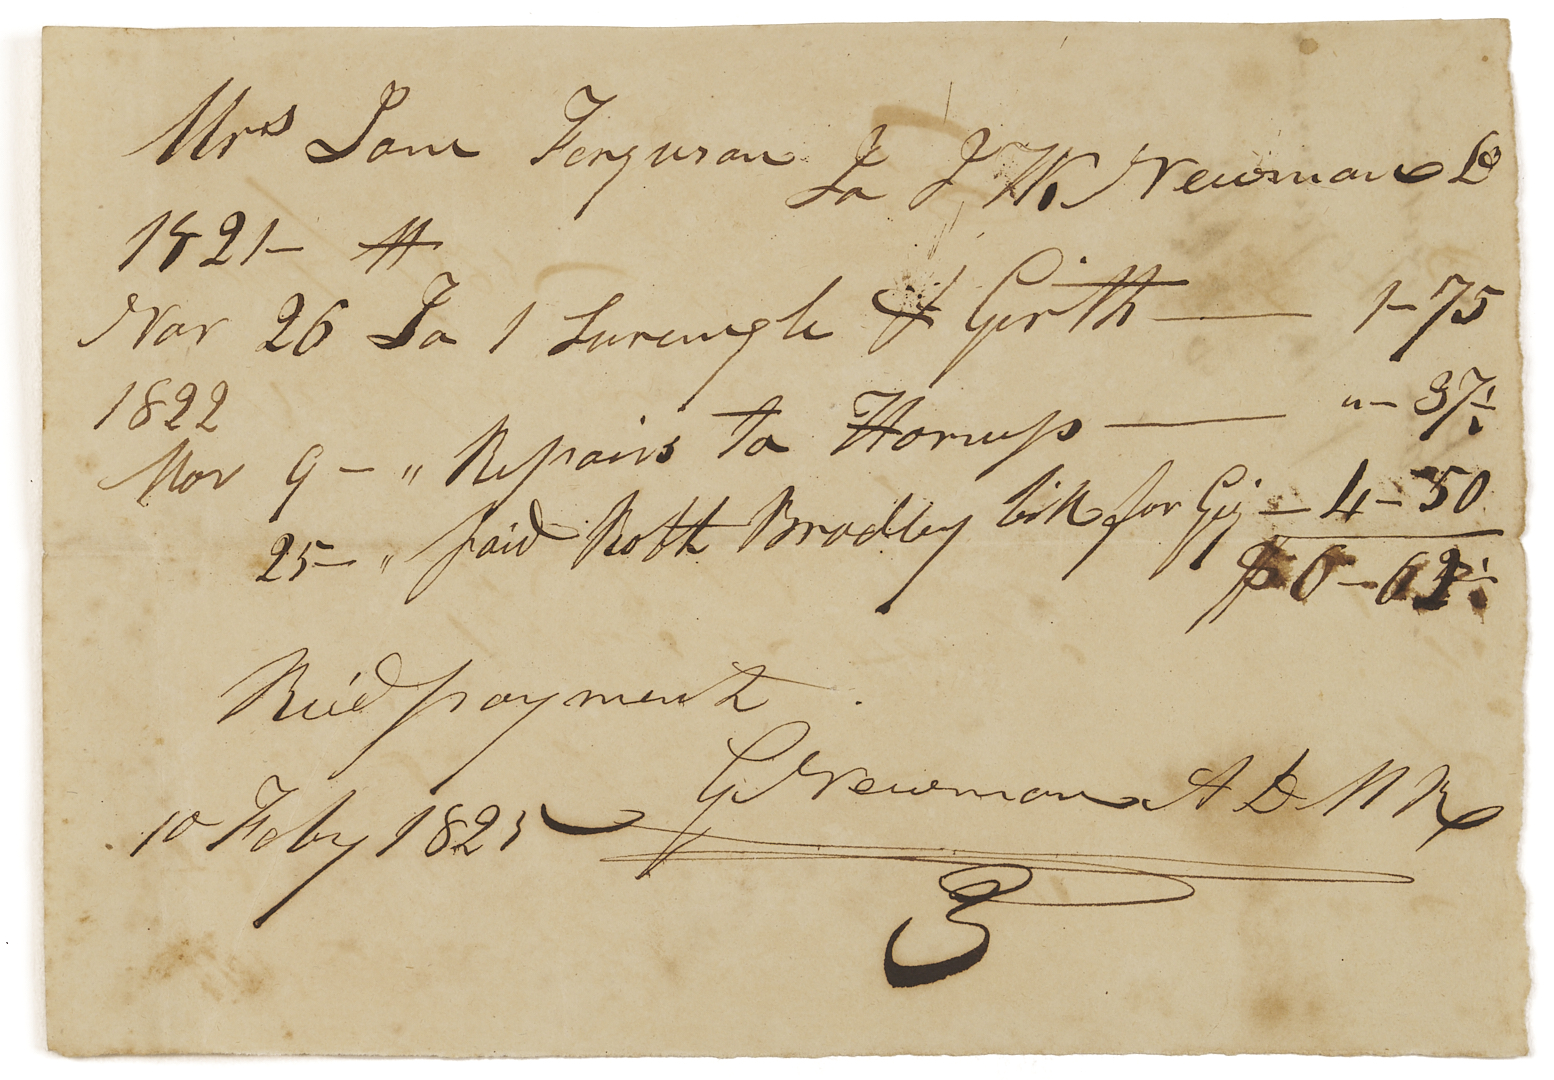 Mrs Jane Ferguson
To J W Newman Dr
1821 –
Nov 26 To 1 Surcingle & Girth — 1–75
1822
Mar 9 – " Repairs to Harness — " – 37½
25 – " paid Robt Bradley bill for Gig – 4–50
$6–62½
Rec'd payment
G Newman A D M R
10 Feby 1823
3